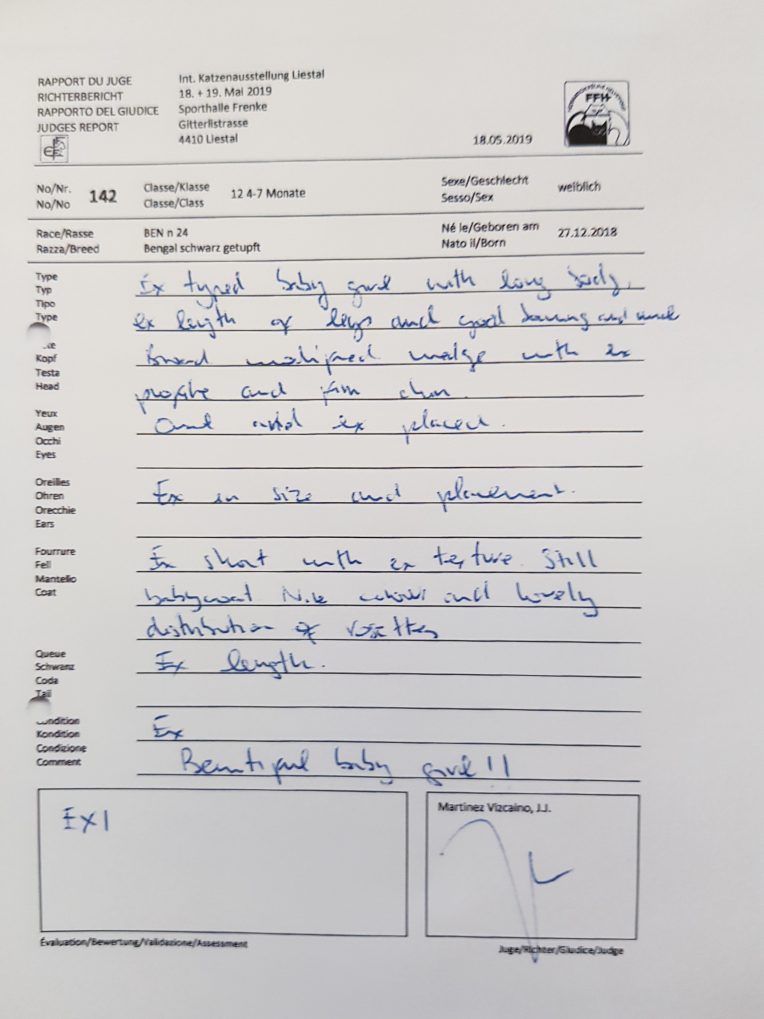 RAPPORT DU JUGE
RICHTERBERICHT
RAPPORTO DEL GIUDICE
JUDGES REPORT
Int. Katzenausstellung Liestal
18. + 19. Mai 2019
Sporthalle Frenke
Gitterlistrasse
4410 Liestal
18.05.2019
FFH
No/Nr.
No/No
142
Classe/Klasse
Classe/Class
12 4-7 Monate
Sexe/Geschlecht
Sesso/Sex
weiblich
Race/Rasse
Razza/Breed
BEN n 24
Bengal schwarz getupft
Né le/Geboren am
Nato il/Born
27.12.2018
Type
Typ
Tipo
Type
Ex typed baby girl with long body,
ex length of legs and good boning and
Kopf
Testa
Head
Broad modified wedge with ex
profile and firm chin.
Yeux
Augen
Occhi
Eyes
ex placed.
Oreilles
Ohren
Orecchie
Ears
Ex in size and placement.
Fourrure
Fell
Mantello
Coat
Ex short with ex texture. Still
babycoat Nice colour and lovely
distribution of rosettes
Queue
Schwanz
Coda
Tail
Ex length.
Condition
Kondition
Condizione
Comment
Ex
Beautiful baby girl!!
EX1
Évaluation/Bewertung/Validazione/Assessment
Martinez Vizcaino, J.J.
Juge/Richter/Giudice/Judge